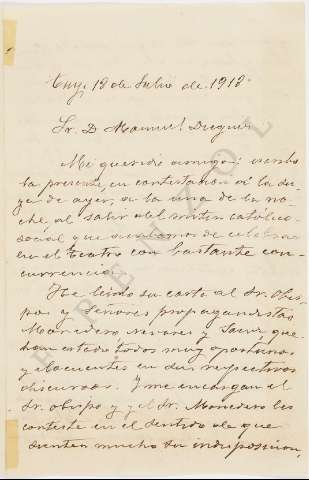 Tuy, 19 de Julio de 1913.
Sr. D Manuel Dieguez
Mi querido amigo: escribo
la presente, en contestación a la su-
ya de ayer, a la una de la no-
che, al salir del mitin católico-
social que acabamos de celebrar
en el teatro con bastante con-
currencia.
He leido su carta al Sr. Obis-
po y Señores propagandistas
Monedero, Nevares y que
han estado todos muy oportunos
y elocuentes en sus respectivos
discursos. Y me encargan el
Sr. Obispo y el Sr. Monedero les
conteste en el sentido de que
sienten mucho su indisposicion,